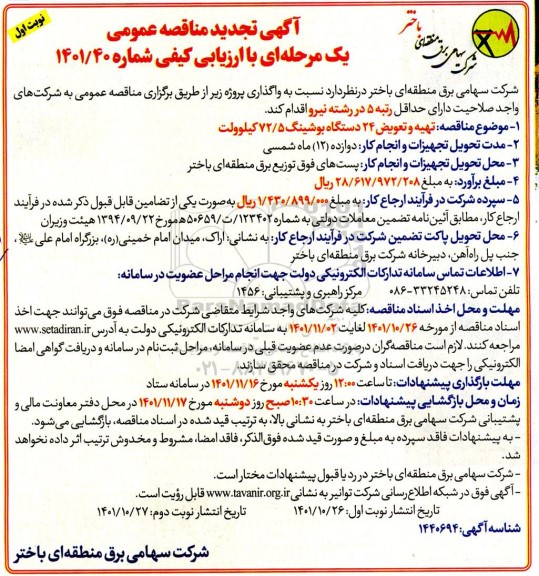 نوبت اول
باختر
شرکت سهامی برق منطقه‌ای
آگهی تجدید مناقصه عمومی
یک مرحله‌ای با ارزیابی کیفی شماره ۱۴۰۱/۴۰
شرکت سهامی برق منطقه‌ای باختر درنظردارد نسبت به واگذاری پروژه زیر از طریق برگزاری مناقصه عمومی به شرکت‌های
واجد صلاحیت دارای حداقل رتبه ۵ در رشته نیرو اقدام کند.
۱- موضوع مناقصه: تهیه و تعویض ۲۴ دستگاه بوشینگ ۷۲/۵ کیلوولت
۲- مدت تحویل تجهیزات و انجام کار: دوازده (۱۲) ماه شمسی
۳- محل تحویل تجهیزات و انجام کار: پست‌های فوق توزیع برق منطقه‌ای باختر
۴- مبلغ برآورد: به مبلغ ۲۸/۶۱۷/۹۷۲/۲۰۸ ریال
۵- سپرده شرکت در فرآیند ارجاع کار: به مبلغ ۱/۴۳۰/۸۹۹/۰۰۰ ریال به‌صورت یکی از تضامین قابل قبول ذکر شده در فرآیند
ارجاع کار، مطابق آئین‌نامه تضمین معاملات دولتی به شماره ۱۲۳۴۰۲/ت۵۰۶۵۹هـ مورخ ۱۳۹۴/۰۹/۲۲ هیئت وزیران
۶- محل تحویل پاکت تضمین شرکت در فرآیند ارجاع کار: به نشانی: اراک، میدان امام خمینی(ره)، بزرگراه امام علی ،
جنب پل راه‌آهن، دبیرخانه شرکت برق منطقه‌ای باختر
۷- اطلاعات تماس سامانه تدارکات الکترونیکی دولت جهت انجام مراحل عضویت در سامانه:
تلفن تماس: ۳۳۲۴۵۲۴۸-۰۸۶ مرکز راهبری و پشتیبانی: ۱۴۵۶
مهلت و محل اخذ اسناد مناقصه: کلیه شرکت‌های واجد شرایط متقاضی شرکت در مناقصه فوق می‌توانند جهت اخذ
اسناد مناقصه از مورخه ۱۴۰۱/۱۰/۲۶ لغایت ۱۴۰۱/۱۱/۰۲ به سامانه تدارکات الکترونیکی دولت به آدرس www.setadiran.ir
مراجعه کنند. لازم است مناقصه‌گران درصورت عدم عضویت قبلی در سامانه، مراحل ثبت‌نام در سامانه و دریافت گواهی امضا
الکترونیکی را جهت دریافت اسناد و شرکت در مناقصه محقق سازند.
مهلت بارگذاری پیشنهادات: تا ساعت ۱۲:۰۰ روز یکشنبه مورخ ۱۴۰۱/۱۱/۱۶ در سامانه ستاد
زمان و محل بازگشایی پیشنهادات: در ساعت ۱۰:۳۰ صبح روز دوشنبه مورخ ۱۴۰۱/۱۱/۱۷ در محل دفتر معاونت مالی و
پشتیبانی شرکت سهامی برق منطقه‌ای باختر به نشانی بالا، به ترتیب قید شده در اسناد مناقصه، بازگشایی می‌شود.
- به پیشنهادات فاقد سپرده به مبلغ و صورت قید شده فوق‌الذکر، فاقد امضا، مشروط و مخدوش ترتیب اثر داده نخواهد
شد.
- شرکت سهامی برق منطقه‌ای باختر در رد یا قبول پیشنهادات مختار است.
- آگهی فوق در شبکه اطلاع‌رسانی شرکت توانیر به نشانی www.tavanir.org.ir قابل رؤیت است.
تاریخ انتشار نوبت اول: ۱۴۰۱/۱۰/۲۶ تاریخ انتشار نوبت دوم: ۱۴۰۱/۱۰/۲۷
شناسه آگهی: ۱۴۴۰۶۹۴
شرکت سهامی برق منطقه‌ای باختر